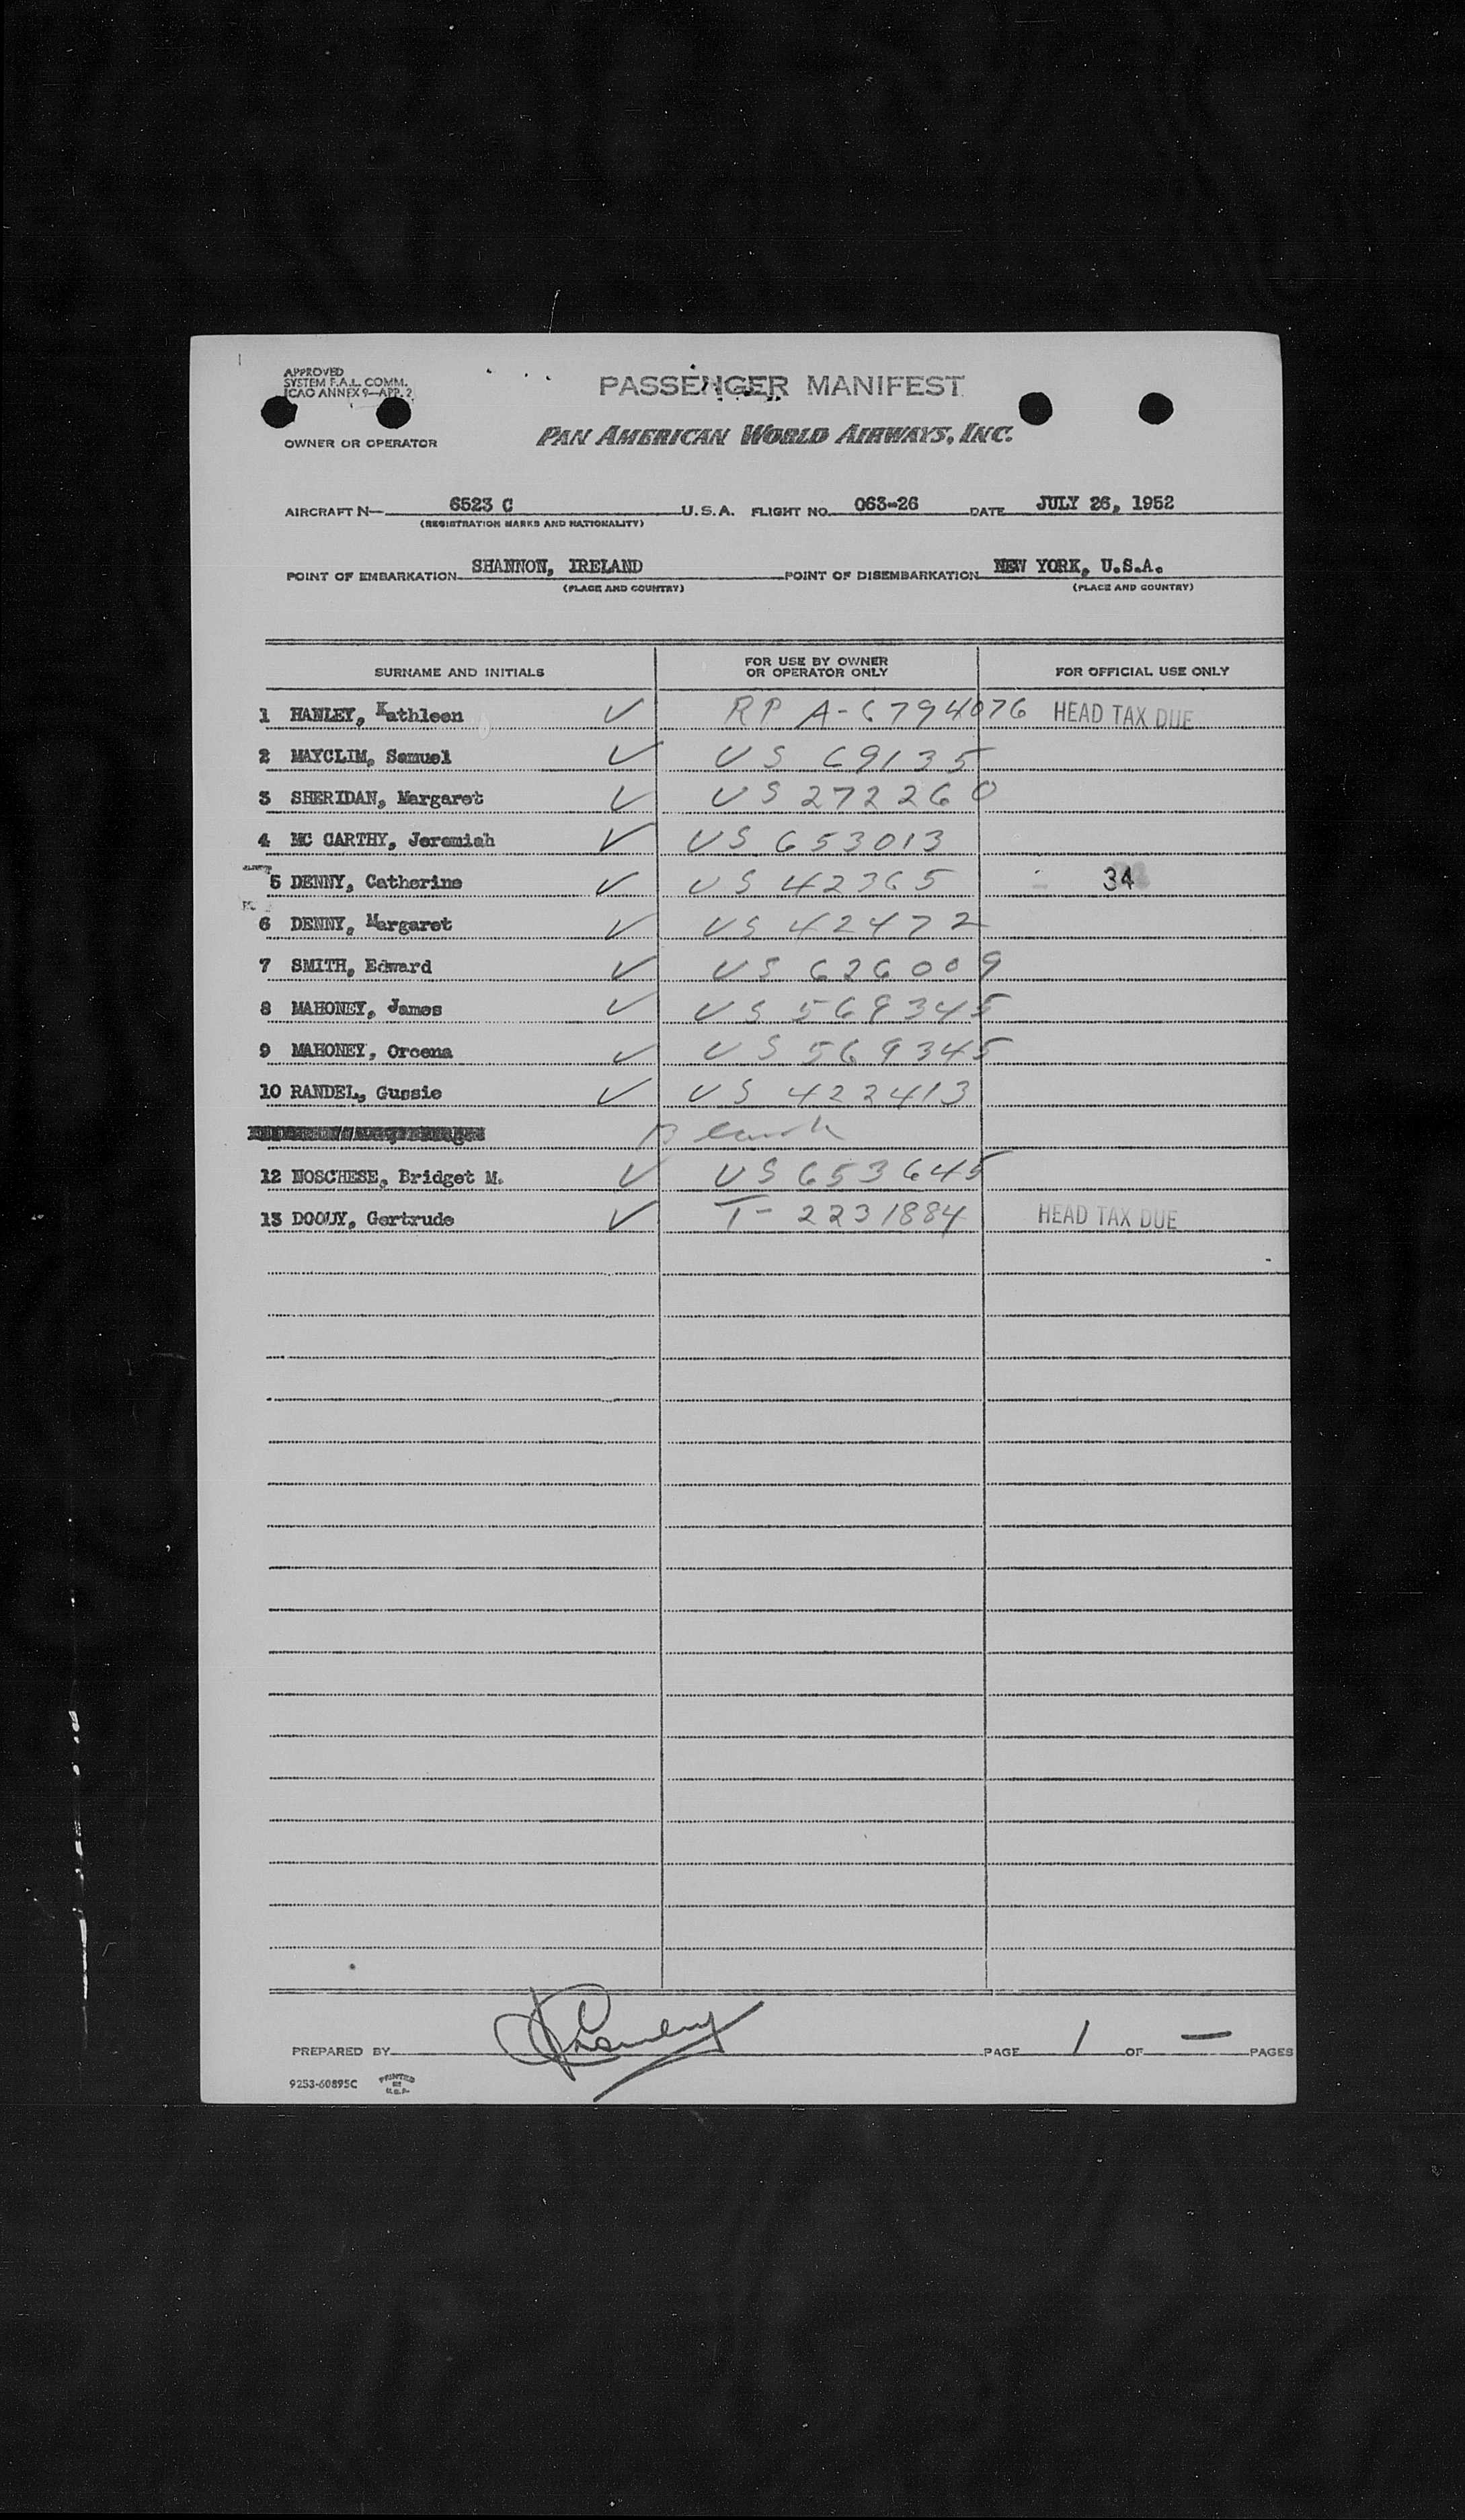 APPROVED
SYSTEM F.A.L. COMM.
ICAO ANNEX 9—APP. 2
PASSENGER MANIFEST
OWNER OR OPERATOR
PAN AMERICAN WORLD AIRWAYS, INC.
AIRCRAFT N— 6523 C U.S.A. FLIGHT NO. 063-26 DATE JULY 26, 1952
(REGISTRATION MARKS AND NATIONALITY)
POINT OF EMBARKATION SHANNON, IRELAND POINT OF DISEMBARKATION NEW YORK, U.S.A.
(PLACE AND COUNTRY) (PLACE AND COUNTRY)
SURNAME AND INITIALS FOR USE BY OWNER OR OPERATOR ONLY FOR OFFICIAL USE ONLY
1 HANLEY, Kathleen ✓ RP A-6794076 HEAD TAX DUE
2 MAYCLIM, Samuel ✓ US 69135
3 SHERIDAN, Margaret ✓ US 272260
4 MC CARTHY, Jeremiah ✓ US 653013
5 DENNY, Catherine ✓ US 42365 34
6 DENNY, Margaret ✓ US 42472
7 SMITH, Edward ✓ US 626009
8 MAHONEY, James ✓ US 569345
9 MAHONEY, Orcena ✓ US 569345
10 RANDEL, Gussie ✓ US 422413
Blank
12 NOSCHESE, Bridget M. ✓ US 653645
13 DOOUY, Gertrude ✓ T- 2231884 HEAD TAX DUE
PREPARED BY PAGE 1 OF — PAGES
9253-60895C PRINTED IN U.S.A.